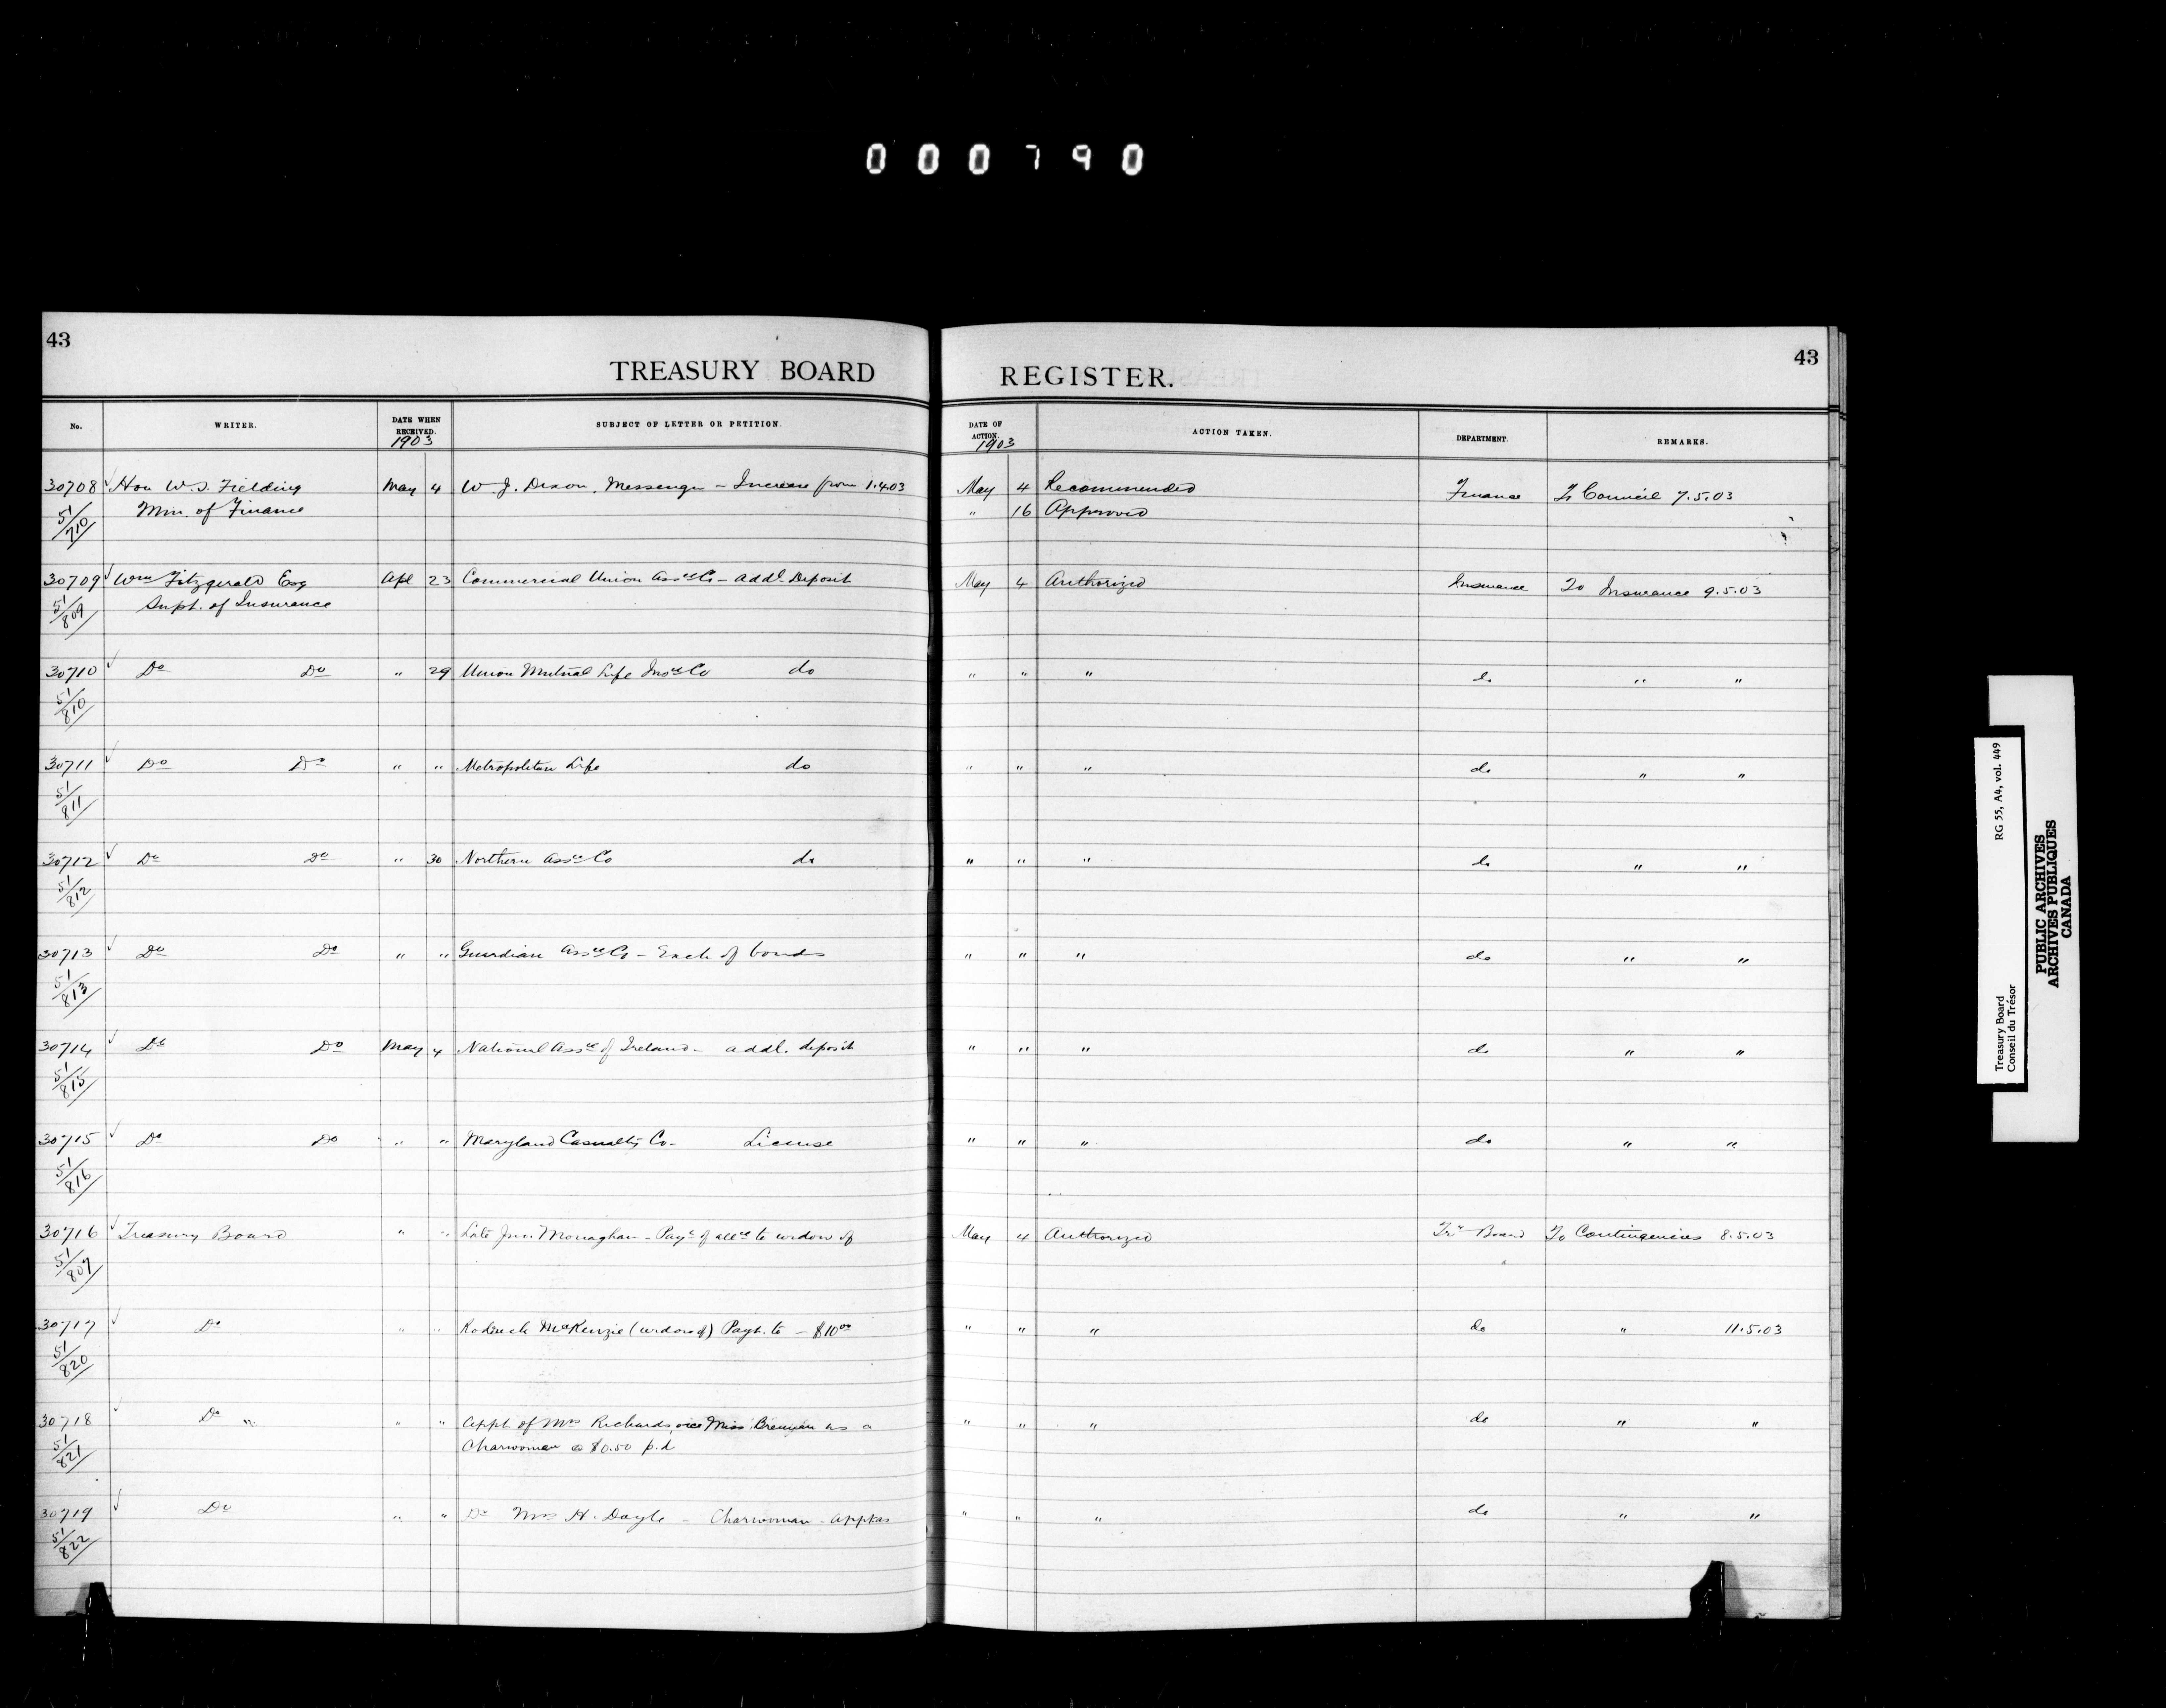 000790
43
TREASURY BOARD REGISTER.
43
No. WRITER. DATE WHEN RECEIVED. 1903 SUBJECT OF LETTER OR PETITION. DATE OF ACTION. 1903 ACTION TAKEN. DEPARTMENT. REMARKS.
30708 Hon W.S. Fielding May 4 W. J. Dixon, Messenger - Increase from 1.4.03 May 4 Recommended Finance To Council 7.5.03
51/710 Min. of Finance " 16 Approved
30709 Wm Fitzgerald Esq Apl 23 Commercial Union Assce Co - addl. Deposit May 4 Authorized Insurance To Insurance 9.5.03
51/809 Supt. of Insurance
30710 Do Do " 29 Union Mutual Life Insce Co do " " " do " "
51/810
30711 Do Do " " Metropolitan Life do " " " do " "
51/811
30712 Do Do " 30 Northern Assce Co do " " " do " "
51/812
30713 Do Do " " Guardian Assce Co - Exch of bonds " " " do " "
51/813
30714 Do Do May 4 National Assce of Ireland - addl. deposit " " " do " "
51/815
30715 Do Do " " Maryland Casualty Co - License " " " do " "
51/816
30716 Treasury Board " " Late Jno. Monaghan - Payt of allce to widow of May 4 Authorized Try Board To Contingencies 8.5.03
51/807
30717 Do " " Roderick McKenzie (widow of) Payt. to - $10.00 " " " do " 11.5.03
51/820
30718 Do " " Appt. of Mrs Richards, vice Miss Brennan as a " " " do " "
51/821 Charwoman @ $0.50 p.d
30719 Do " " Do Mrs H. Doyle - Charwoman - " " " do " "
51/822
Treasury Board RG 55, A4, vol. 449
Conseil du Trésor
PUBLIC ARCHIVES
ARCHIVES PUBLIQUES
CANADA